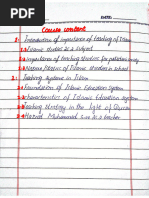 DATE:
Course content
1:- Introduction of importance of teaching of Islam
1.1 Islamic studies as a subject
1.2 importance of teaching studies for
1.3 Islamic studies in school
2:- Teaching systems in Islam
2.1 Foundation of Islamic Education System
2.2 characteristics of Islamic Education system
2.3 Teaching strategy in the light of Quran
2.4 Hazrat Muhammad as a teacher